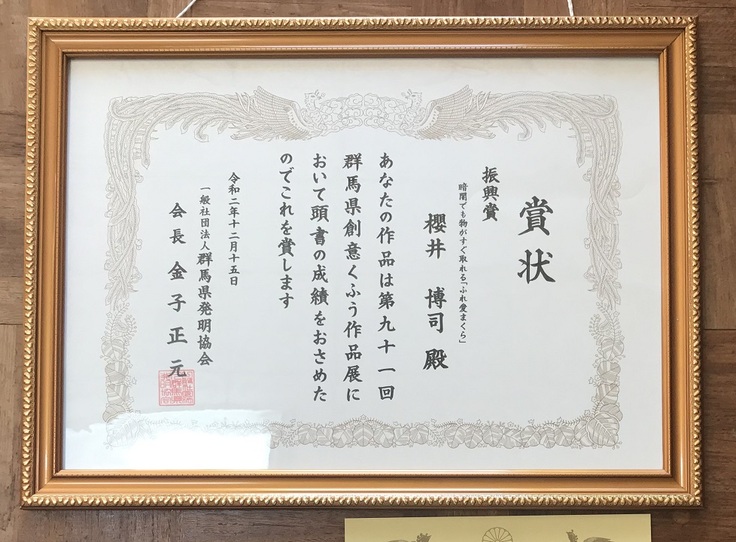 賞状
振興賞
暗闇でも物がすぐ取れる「ふれ愛まくら」
櫻井 博司 殿
あなたの作品は第九十一回
群馬県創意くふう作品展に
おいて頭書の成績をおさめた
のでこれを賞します
令和二年十二月十五日
一般社団法人 群馬県発明協会
会長 金子正元